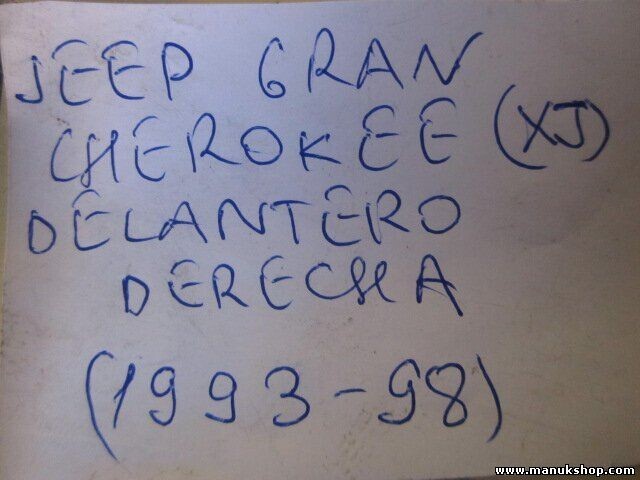 JEEP GRAN
CHEROKEE (XJ)
DELANTERO
DERECHA
(1993-98)
www.manukshop.com